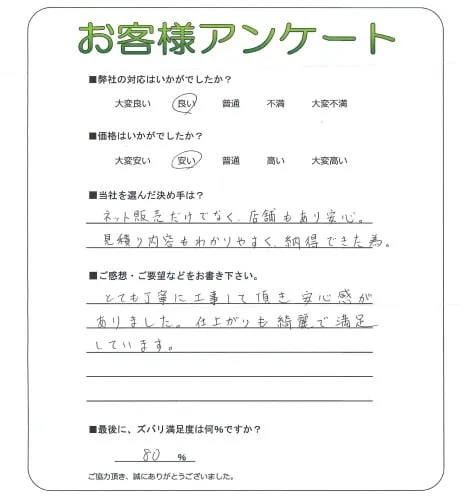 お客様アンケート
■弊社の対応はいかがでしたか？
大変良い 良い 普通 不満 大変不満
■価格はいかがでしたか？
大変安い 安い 普通 高い 大変高い
■当社を選んだ決め手は？
ネット販売だけでなく、店舗もあり安心。
見積り内容もわかりやすく、納得できた為。
■ご感想・ご要望などをお書き下さい。
とても丁寧に工事して頂き安心感が
ありました。仕上がりも綺麗で満足
しています。
■最後に、ズバリ満足度は何％ですか？
80 ％
ご協力頂き、誠にありがとうございました。